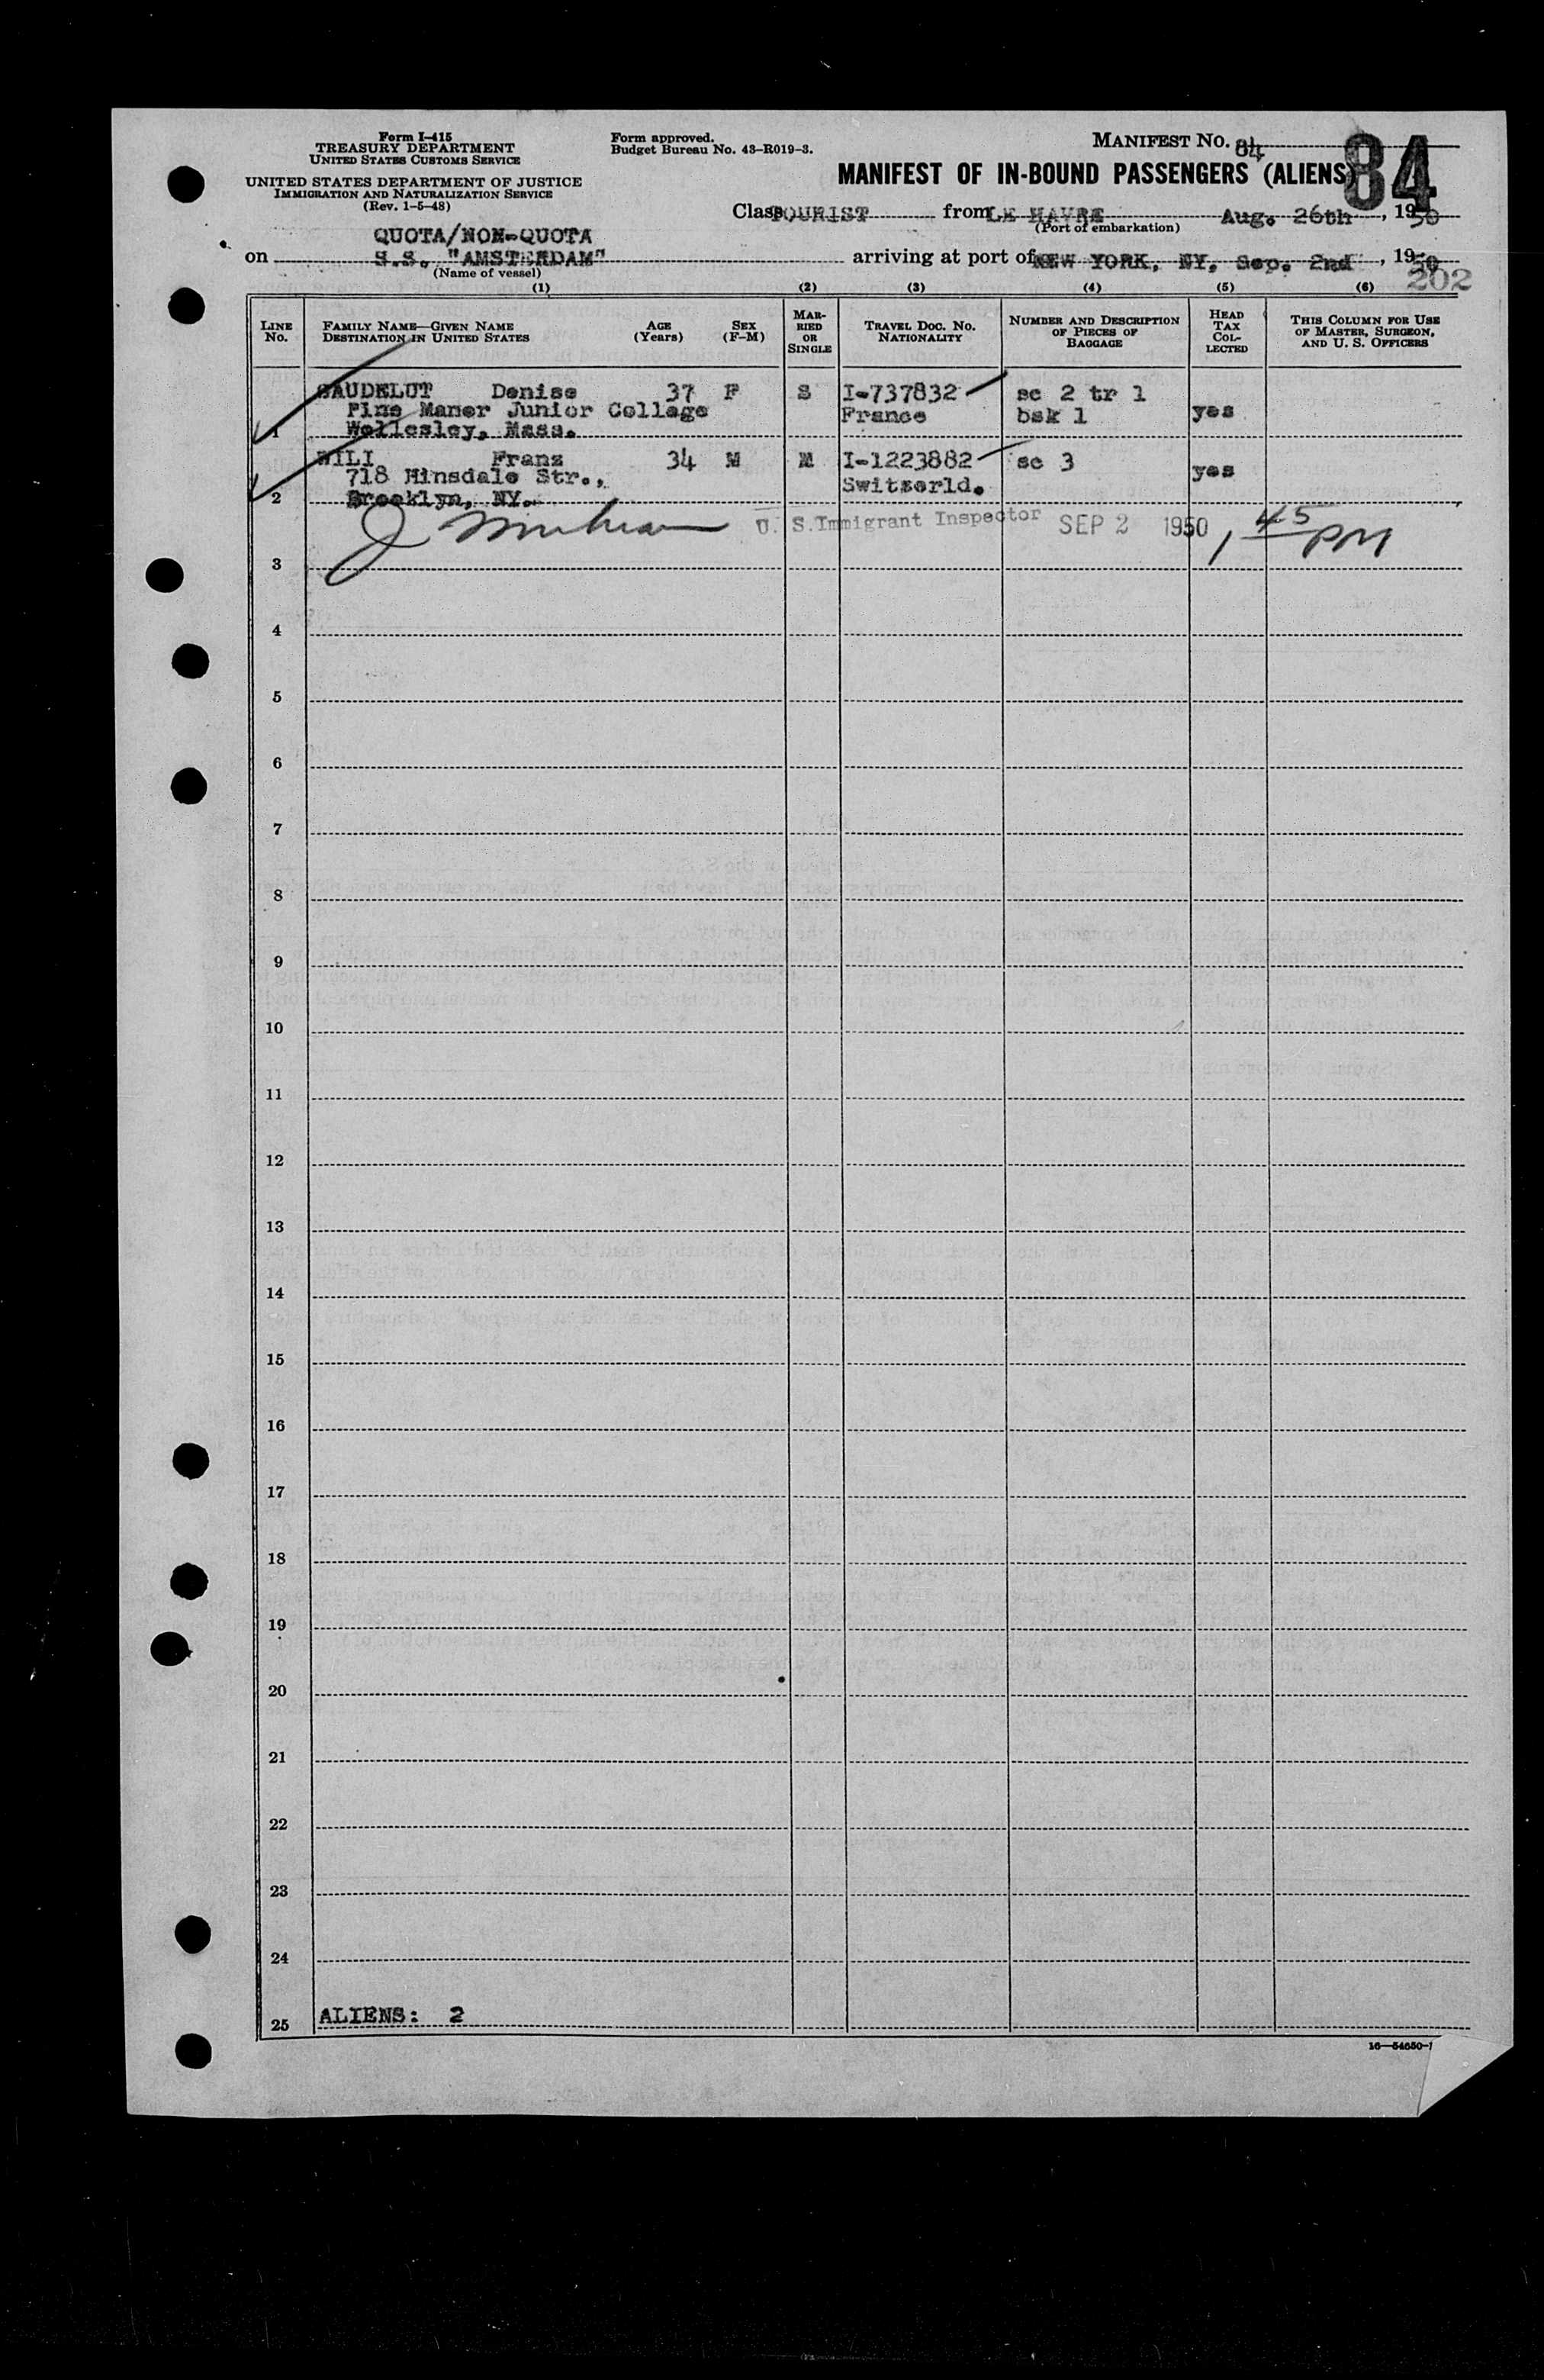 Form I-415
TREASURY DEPARTMENT
UNITED STATES CUSTOMS SERVICE
UNITED STATES DEPARTMENT OF JUSTICE
IMMIGRATION AND NATURALIZATION SERVICE
(Rev. 1-5-48)
Form approved.
Budget Bureau No. 43-R019-3.
MANIFEST NO. 84
84
MANIFEST OF IN-BOUND PASSENGERS (ALIENS)
Class TOURIST from LE HAVRE Aug. 26th, 1950
(Port of embarkation)
QUOTA/NON-QUOTA
on S.S. "AMSTERDAM" arriving at port of NEW YORK, NY, Sep. 2nd, 1950
(Name of vessel)
202
(1) (2) (3) (4) (5) (6)
LINE NO. FAMILY NAME—GIVEN NAME DESTINATION IN UNITED STATES AGE (Years) SEX (F-M) MARRIED OR SINGLE TRAVEL DOC. NO. NATIONALITY NUMBER AND DESCRIPTION OF PIECES OF BAGGAGE HEAD TAX COLLECTED THIS COLUMN FOR USE OF MASTER, SURGEON, AND U. S. OFFICERS
GAUDELUT Denise 37 F S I-737832 sc 2 tr 1
Pine Maner Junior College France bsk 1 yes
1 Wellesley, Mass.
WILI Franz 34 M M I-1223882 sc 3
718 Hinsdale Str., Switzerld. yes
2 Brooklyn, NY.
U. S. Immigrant Inspector SEP 2 1950 1 45 PM
3
4
5
6
7
8
9
10
11
12
13
14
15
16
17
18
19
20
21
22
23
24
25 ALIENS: 2
16—54650-1